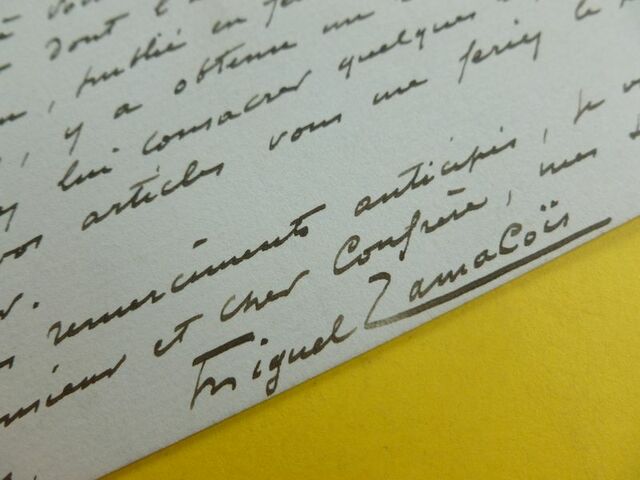 dont l'
, publié en
, y a obtenu un
lui consacrer quelques
vos articles vous me feriez le
remerciements anticipés, je v
monsieur et cher Confrère, mes
Miguel Zamacoïs